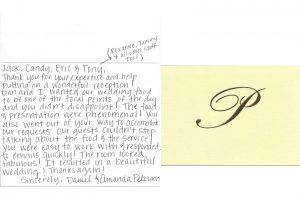 (Roxanne, Tammy
& all other staff
too!)
Jack, Candy, Eric & Tony,
Thank you for your expertise and help
putting on a wonderful reception!
Dan and I wanted our wedding food
to be one of the focal points of the day
and you didn't disappoint! The food
& presentation were phenomenal! You
also went out of your way to accomodate
our requests. Our guests couldn't stop
talking about the food & the service!
You were easy to work with & responded
to emails quickly! The room looked
fabulous! It resulted in a beautiful
wedding! Thanks again!
Sincerely, Daniel & Amanda Peterson
P